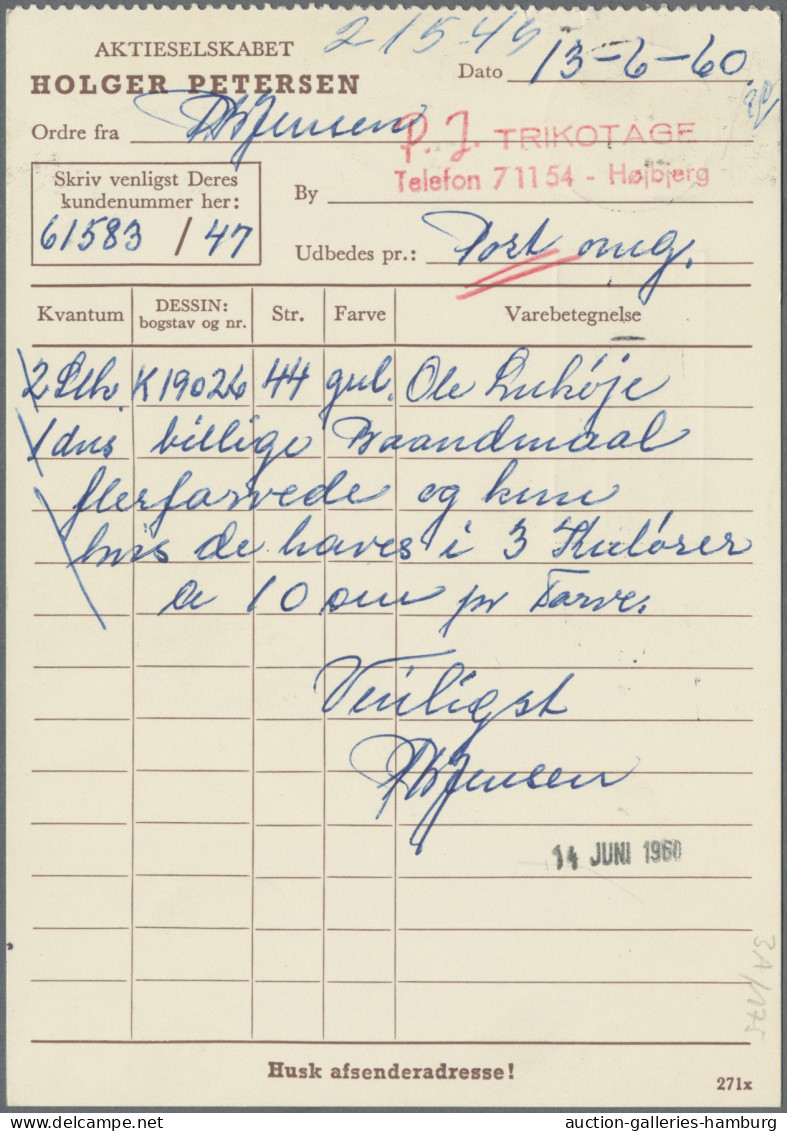 21549
AKTIESELSKABET
HOLGER PETERSEN
Dato 13-6-60
Ordre fra Jensen
P. J. TRIKOTAGE
Telefon 71154 - Højbjerg
Skriv venligst Deres
kundenummer her:
61583 / 47
By
Udbedes pr.: Post omg.
Kvantum DESSIN: bogstav og nr. Str. Farve Varebetegnelse
2 Stk K19026 44 gul. Ole Lukøje
1 dus billige Baandmaal
flerfarvede og kun
hvis de haves i 3 Kulører
a 10 om pr Farve.
Venligst
Jensen
14 JUNI 1960
Husk afsenderadresse!
271x
auction-galleries-hamburg